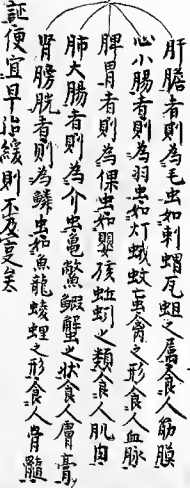 肝膽者則為毛虫如刺蝟瓦蛆之屬食人筋膜
心小腸者則為羽虫如灯蛾蚊䖟禽之形食人血脉
脾胃者則為倮虫如嬰孩蚯蚓之類食人肌肉
肺大腸者則為介虫如龜鱉鰕蟹之狀食人膚膏
腎膀胱者則為鱗虫如魚龍鯪鯉之形食人骨髓
証便宜早治緩則不及変矣